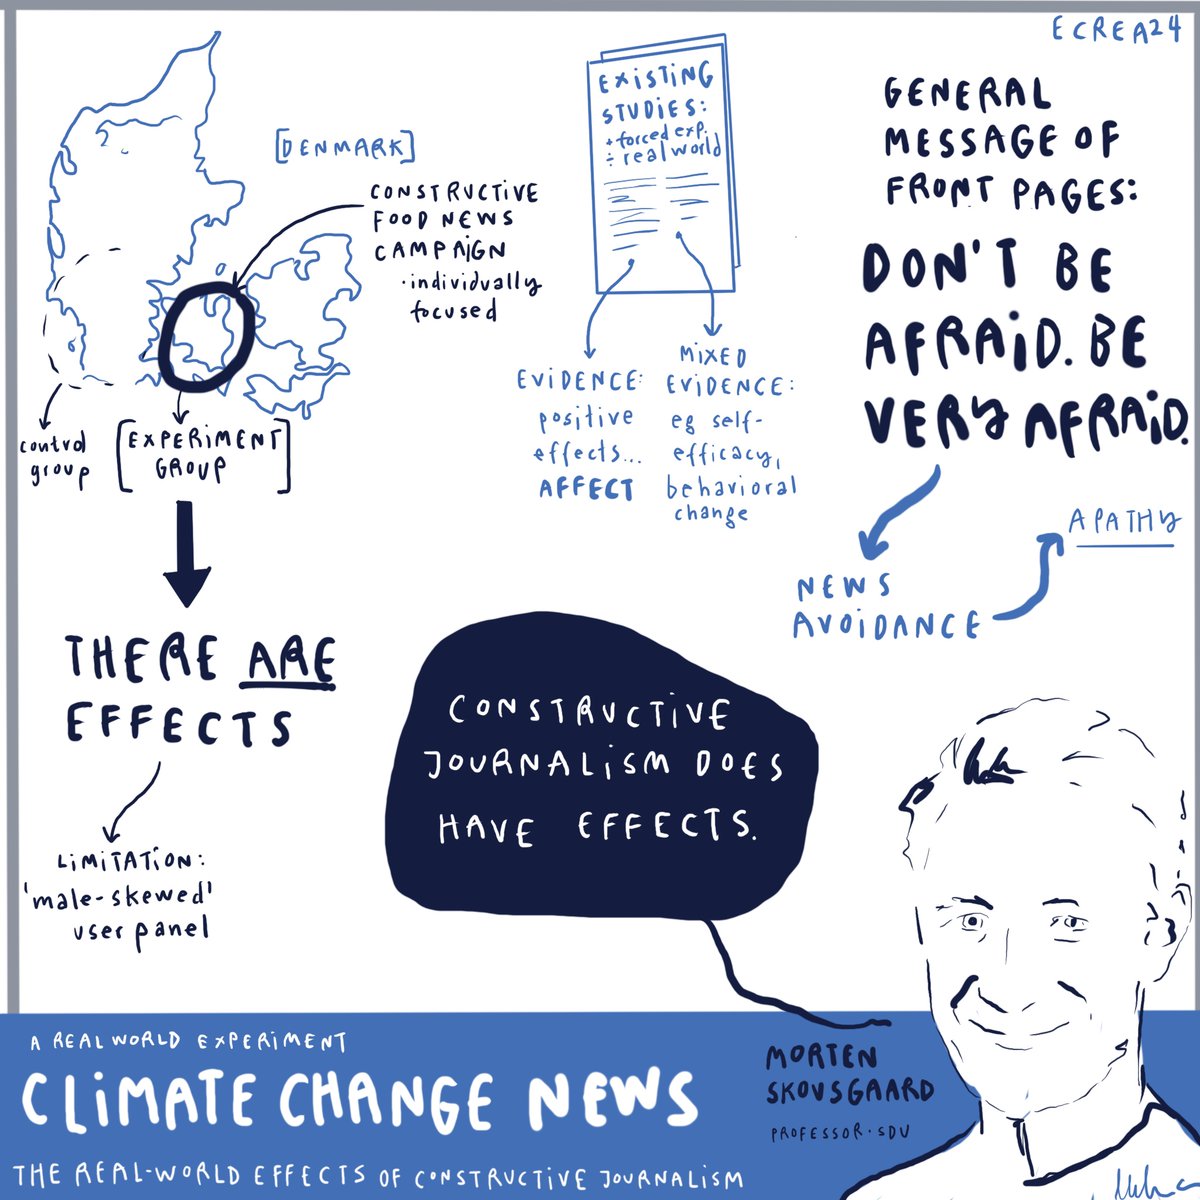 ECREA24
[DENMARK]
CONSTRUCTIVE
FOOD NEWS
CAMPAIGN
· individually
focused
control
group
[EXPERIMENT
GROUP]
THERE ARE
EFFECTS
LIMITATION:
'male-skewed'
user panel
EXISTING
STUDIES:
+ forced exp.
÷ real world
EVIDENCE:
positive
effects...
AFFECT
MIXED
EVIDENCE:
eg self-
efficacy,
behavioral
change
GENERAL
MESSAGE OF
FRONT PAGES:
DON'T BE
AFRAID. BE
VERY AFRAID.
NEWS
AVOIDANCE
APATHY
CONSTRUCTIVE
JOURNALISM DOES
HAVE EFFECTS.
MORTEN
SKOVSGAARD
PROFESSOR · SDU
A REAL WORLD EXPERIMENT
CLIMATE CHANGE NEWS
THE REAL-WORLD EFFECTS OF CONSTRUCTIVE JOURNALISM